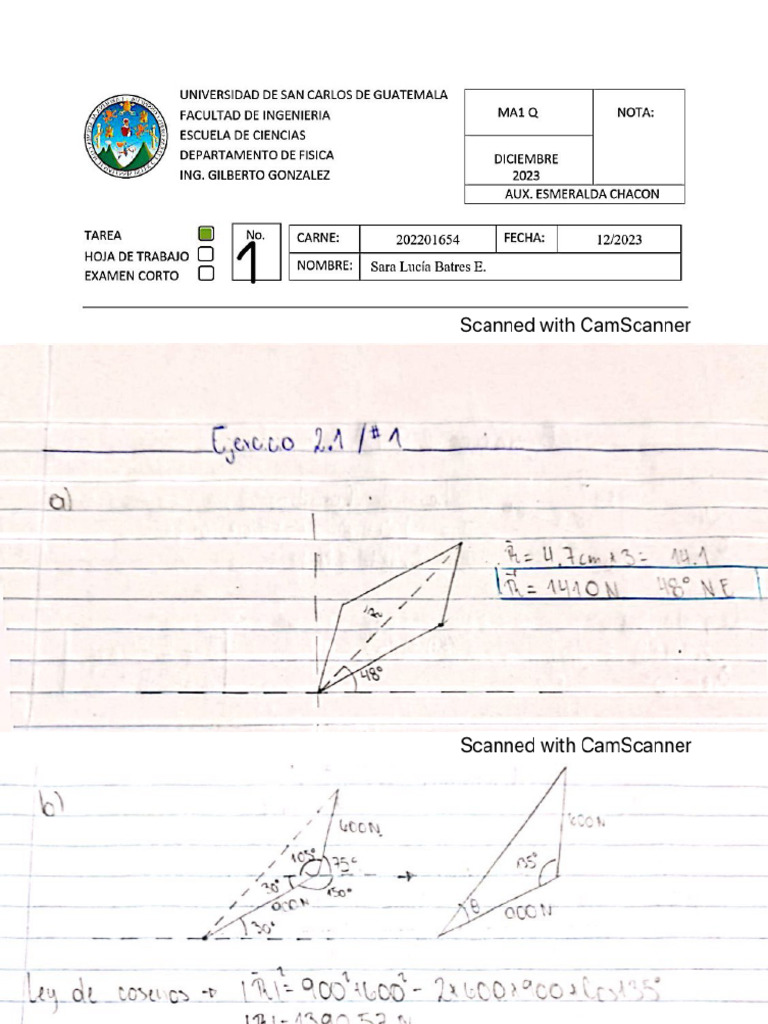 UNIVERSIDAD DE SAN CARLOS DE GUATEMALA
FACULTAD DE INGENIERIA
ESCUELA DE CIENCIAS
DEPARTAMENTO DE FISICA
ING. GILBERTO GONZALEZ
MA1 Q
NOTA:
DICIEMBRE
2023
AUX. ESMERALDA CHACON
TAREA
HOJA DE TRABAJO
EXAMEN CORTO
No.
1
CARNE: 202201654 FECHA: 12/2023
NOMBRE: Sara Lucía Batres E.
Scanned with CamScanner
Ejercicio 2.1 / #1
a)
R = 4.7cm * 3 = 14.1
R = 1410N 48° NE
48°
Scanned with CamScanner
b)
600N
105°
75°
30°
150°
900N
30°
600N
135°
θ
900N
Ley de cosenos → |R|² = 900² + 600² - 2*600*900*Cos135°
|R| = 1390.57 N